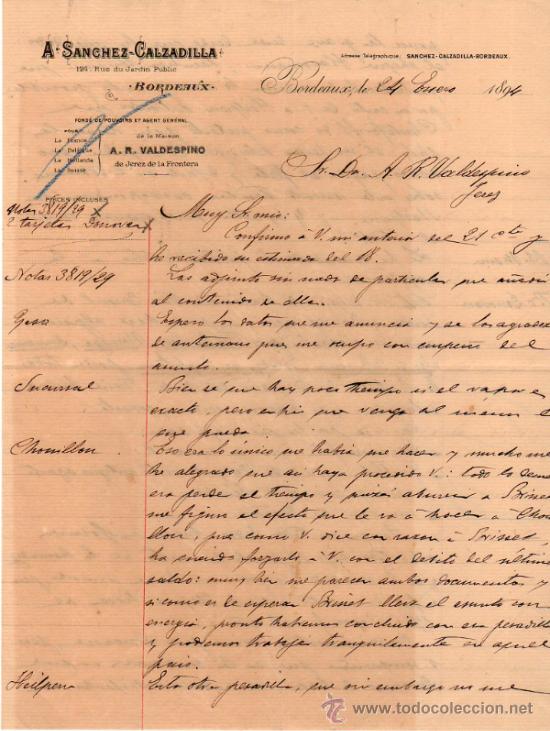 A. SANCHEZ-CALZADILLA
124, Rue du Jardin Public
·BORDEAUX·
Adresse Télégraphique: SANCHEZ-CALZADILLA-BORDEAUX.
Bordeaux, le 24 Enero 1894
FONDÉ DE POUVOIRS ET AGENT GÉNÉRAL
POUR
La France
La Belgique
La Hollande
La Suisse
de la Maison
A. R. VALDESPINO
de Jerez de la Frontera
Sr. Dn. A. R. Valdespino
Jerez
PIÈCES INCLUSES
Notas 3819/29
2 tarjetas
Muy Sr. mio:
Confirmo à V. mi anterior del 21 cte y
he recibido su estimada del 18.
Notas 3819/29
Las adjunto sin nada de particular que añadir
al contenido de ellas.
Espero los datos que me anuncia y se los agradez
de antemano pues me ocupo con empeño del
asunto.
Sucursal
Bien se que hay poco tiempo si el vapor es
exacto, pero en fin que venga al menos l
que pueda.
Chouillon
Eso era lo único que habia que hacer y mucho me
he alegrado que asi haya procedido V.: todo lo demas
era perder el tiempo y quizá aburrir à Brisset
me figuro el efecto que le va à hacer à Chou
llon, pues como V. dice con razon à Brisset,
ha creido fregarlo à V. con el debito del último
saldo: muy bien me parecen ambos documentos y
si como es de esperar Brisset lleva el asunto con
energia, pronto habremos concluido con esa pesadilla
y podremos trabajar tranquilamente en aquel
pais.
Heilpern
Esta otra pesadilla, que sin embargo no me
todocoleccion
www.todocoleccion.net